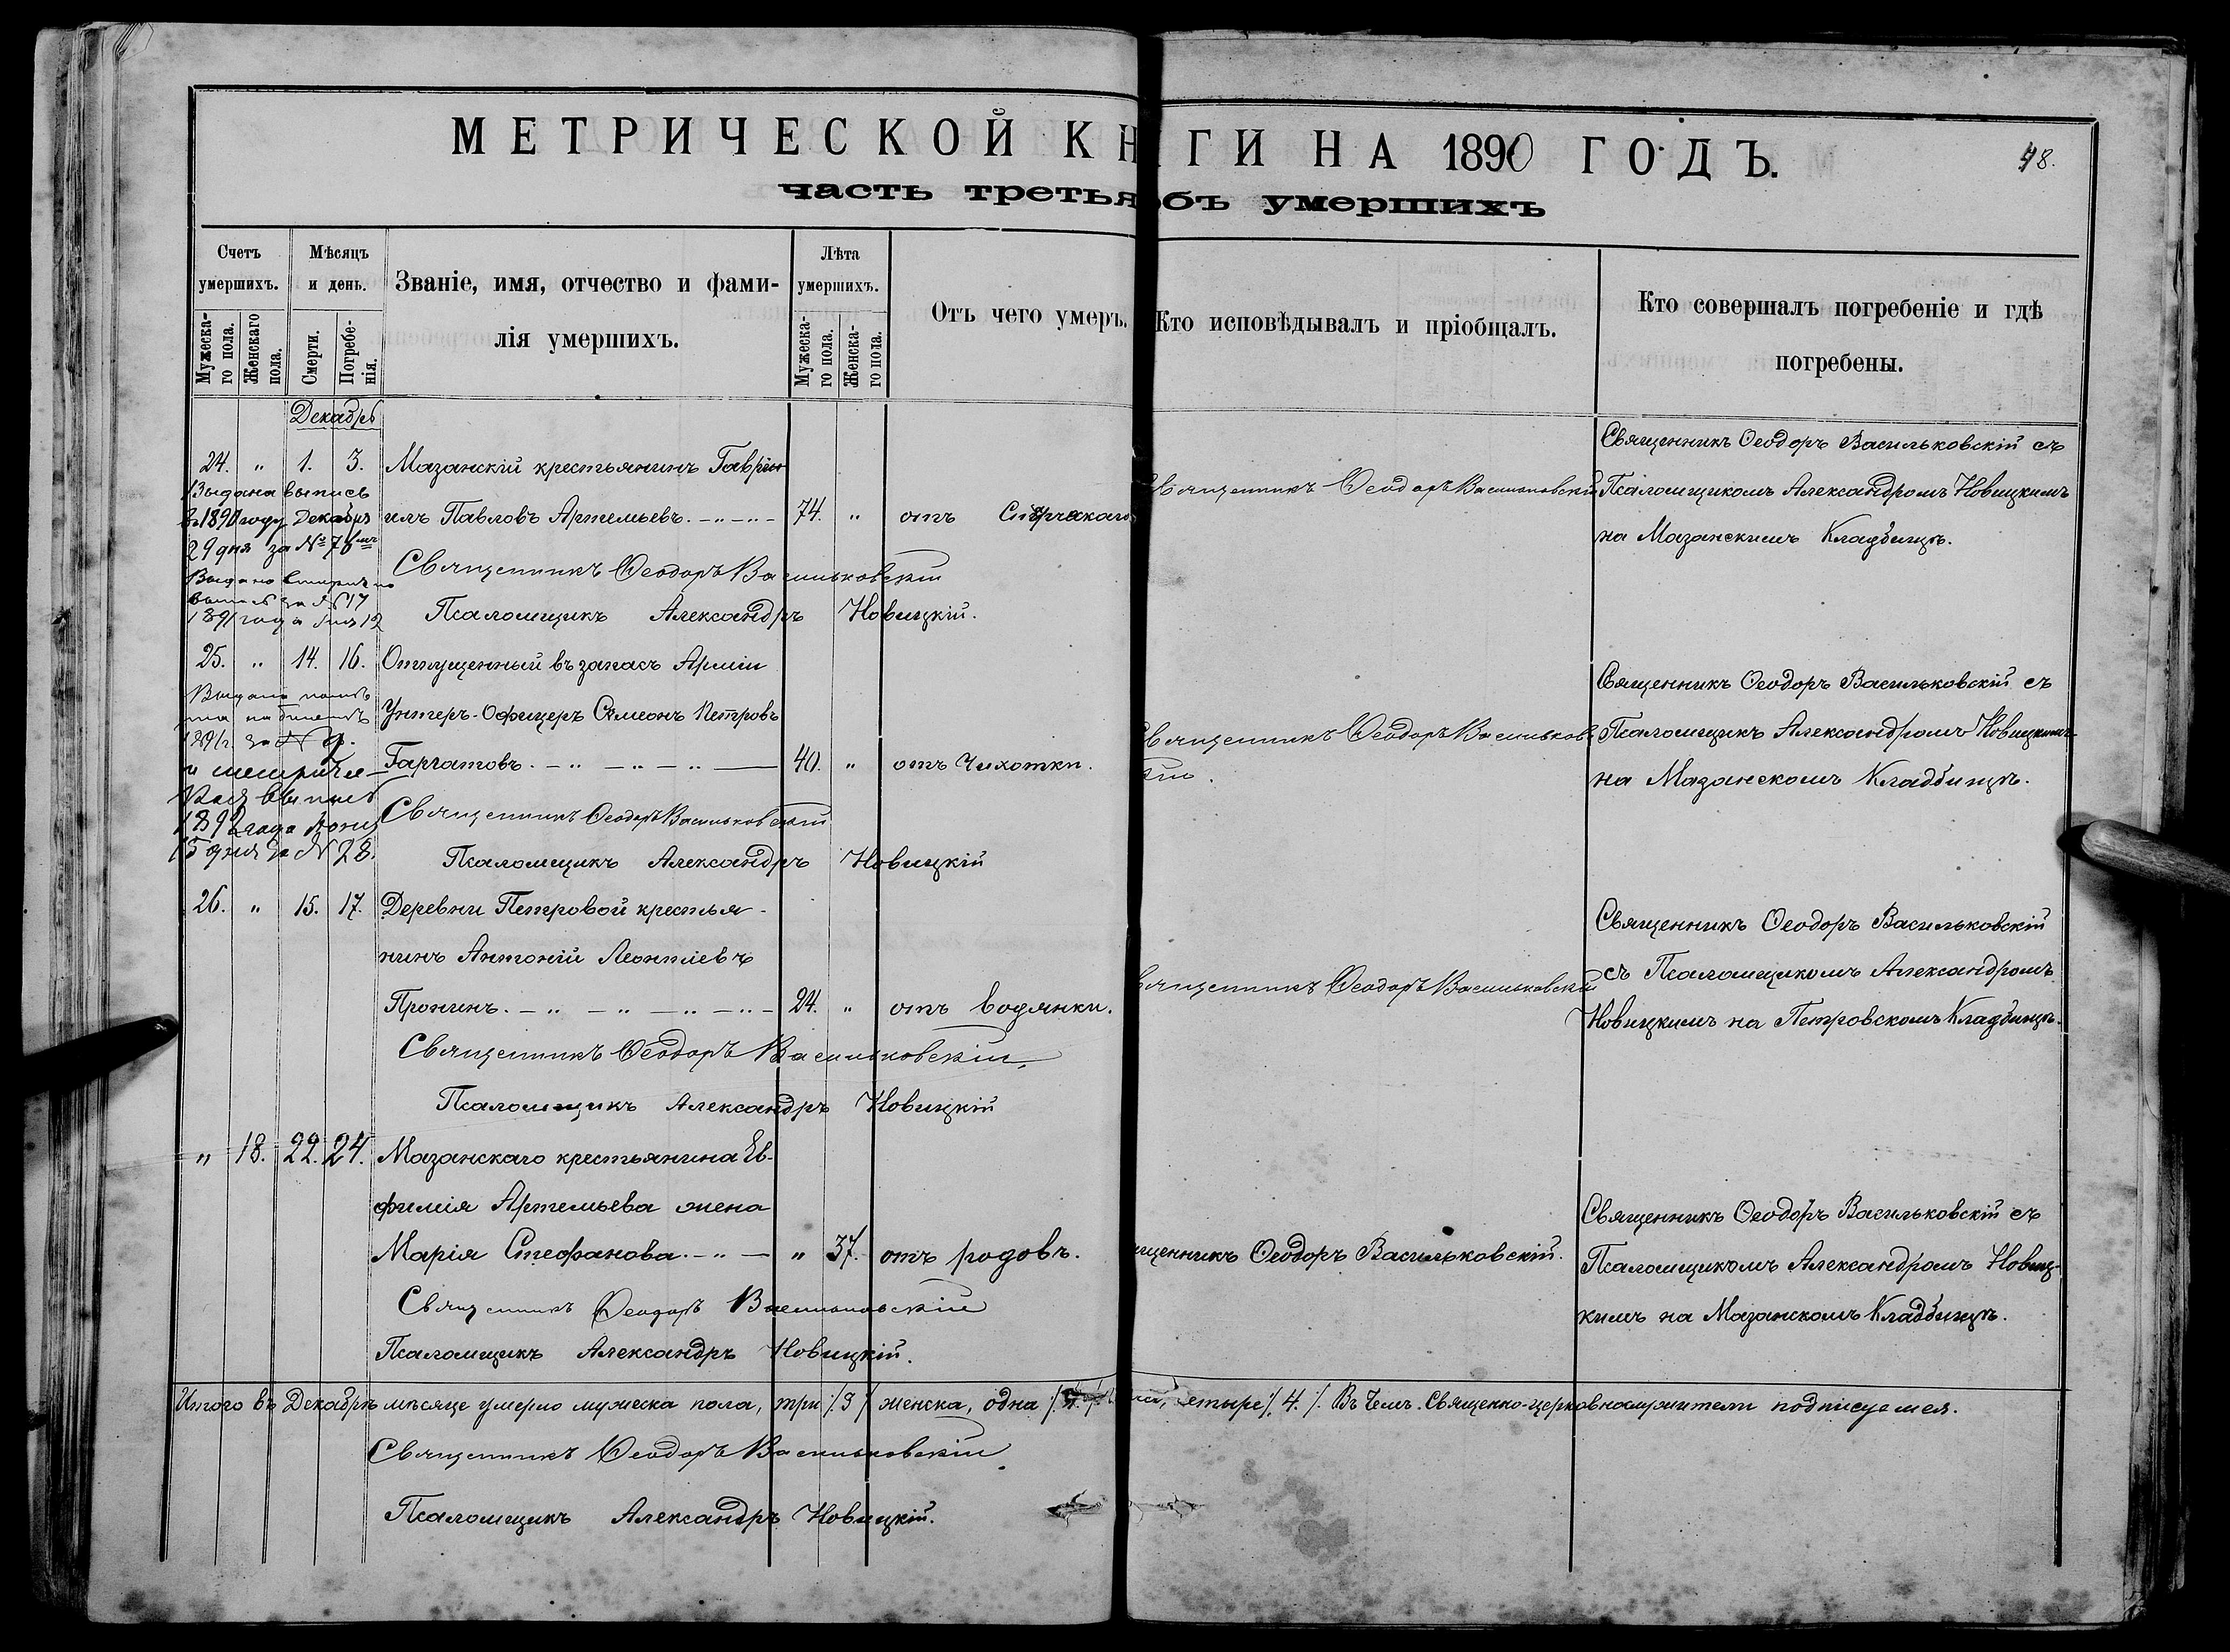 МЕТРИЧЕСКОЙ КНИГИ НА 1890 ГОДЪ.
48.
часть третья объ умершихъ
Счетъ умершихъ.
Мужеска-го пола.
Женскаго пола.
Мѣсяцъ и день.
Смерти.
Погребе-нія.
Званіе, имя, отчество и фами-
лія умершихъ.
Лѣта умершихъ.
Мужеска-го пола.
Женска-го пола.
Отъ чего умеръ.
Кто исповѣдывалъ и пріобщалъ.
Кто совершалъ погребеніе и гдѣ
погребены.
Декабрь
24. " 1. 3. Мазанскій крестьянинъ Гаврі-
илъ Павловъ Артемьевъ. 74. " отъ
Выдана выпись
въ 1890 году Декабря
29 дня за № 78
выпись за № 17
1891 года 12
Священникъ Ѳеодоръ Васильковскій
Псаломщикъ Александръ Новицкій.
Священникъ Ѳеодоръ Васильковскій
Священникъ Ѳеодоръ Васильковскій съ
Псаломщикомъ Александромъ Новицкимъ
на Мазанскимъ Кладбищѣ.
25. " 14. 16. Отпущенный въ запасъ Арміи
Унтеръ-Офицеръ Симеонъ Петровъ
Гаргатовъ. 40. " отъ Чихотки.
1891 г. за № 9.
и метриче-
ская выпись
1892 года
15 дня за № 28.
Священникъ Ѳеодоръ Васильковскій
Псаломщикъ Александръ Новицкій
Священникъ Ѳеодоръ Васильков-
скій.
Священникъ Ѳеодоръ Васильковскій съ
Псаломщикъ Александромъ Новицкимъ
на Мазанскомъ Кладбищѣ.
26. " 15. 17. Деревни Петровой крестья-
нинъ Антоній Леонтіевъ
Пронинъ. 24. " отъ водянки.
Священникъ Ѳеодоръ Васильковскій
Псаломщикъ Александръ Новицкій
Священникъ Ѳеодоръ Васильковскій
Священникъ Ѳеодоръ Васильковскій
съ Псаломщикомъ Александромъ
Новицкимъ на Петровскомъ Кладбищѣ.
" 18. 22. 24. Мазанскаго крестьянина Ев-
фимія Артемьева жена
Марія Стефанова. " 37. отъ родовъ.
Священникъ Ѳеодоръ Васильковскій
Псаломщикъ Александръ Новицкій.
Священникъ Ѳеодоръ Васильковскій.
Священникъ Ѳеодоръ Васильковскій съ
Псаломщикомъ Александромъ Новиц-
кимъ на Мазанскомъ Кладбищѣ.
Итого въ Декабрѣ мѣсяце умерло мужеска пола, три /.3/ женска, одна четыре /.4./. Въ чемъ Священно-церковнослужители подписуемся.
Священникъ Ѳеодоръ Васильковскій
Псаломщикъ Александръ Новицкій.